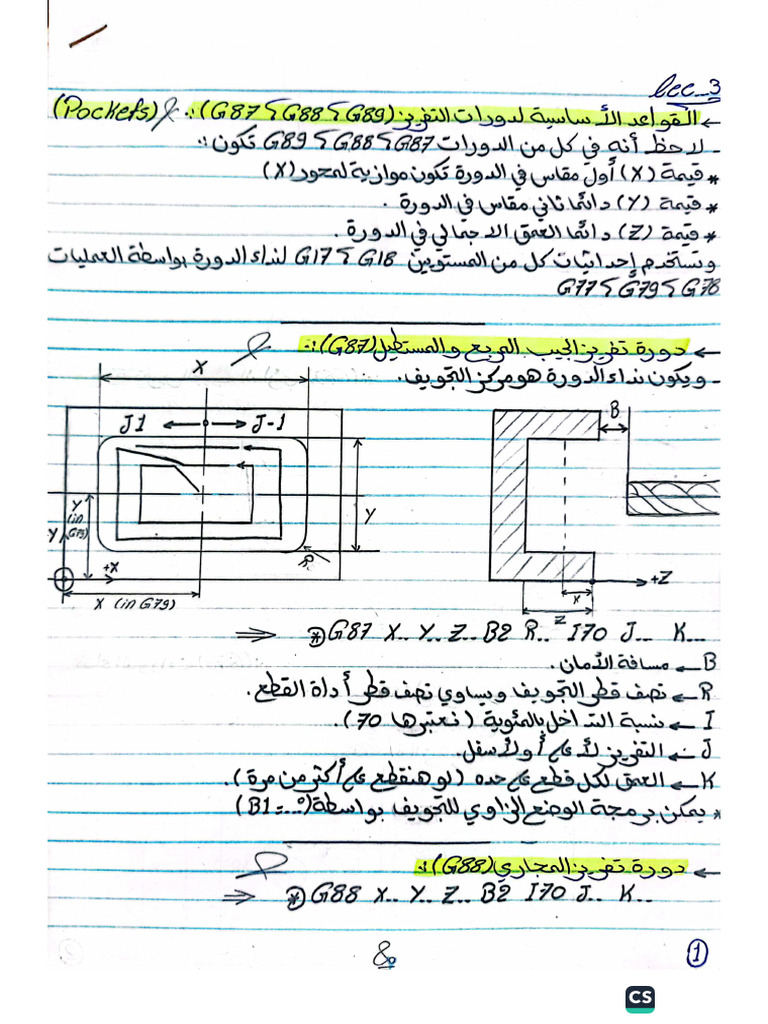 Lec_3
← القواعد الأساسية لدورات التفريز (G87 ، G88 ، G89) :. (Pockets)
- لاحظ أنه في كل من الدورات G87 ، G88 ، G89 تكون :.
* قيمة (X) أول مقاس في الدورة تكون موازية لمحور (X)
* قيمة (Y) دائما ثاني مقاس في الدورة .
* قيمة (Z) دائما العمق الاجمالي في الدورة .
وتستخدم إحداثيات كل من المستويين G17 ، G18 لنداء الدورة بواسطة العمليات
G77 ، G79 ، G78
← دورة تفريز الجيب المربع والمستطيل (G87) :.
- ويكون نداء الدورة هو مركز التجويف.
X
B
J1 J-1
Y
Y (in G79)
-Y
R
+X
X (in G79)
+Z
X
Z
⇒ * G87 X.. Y.. Z.. B2 R.. I70 J... K...
B ← مسافة الأمان .
R ← نصف قطر التجويف ويساوي نصف قطر أداة القطع .
I ← نسبة التداخل بالمئوية ( نعتبرها 70 ) .
J ← التفريز لأعلى أو لأسفل .
K ← العمق لكل قطع على حده ( لو هنقطع على أكثر من مرة ) .
* يمكن برمجة الوضع الزاوي للتجويف بواسطة (B1=...°)
← دورة تفريز المجاري (G88) :.
⇒ * G88 X.. Y.. Z.. B2 I70 J.. K..
1
CS